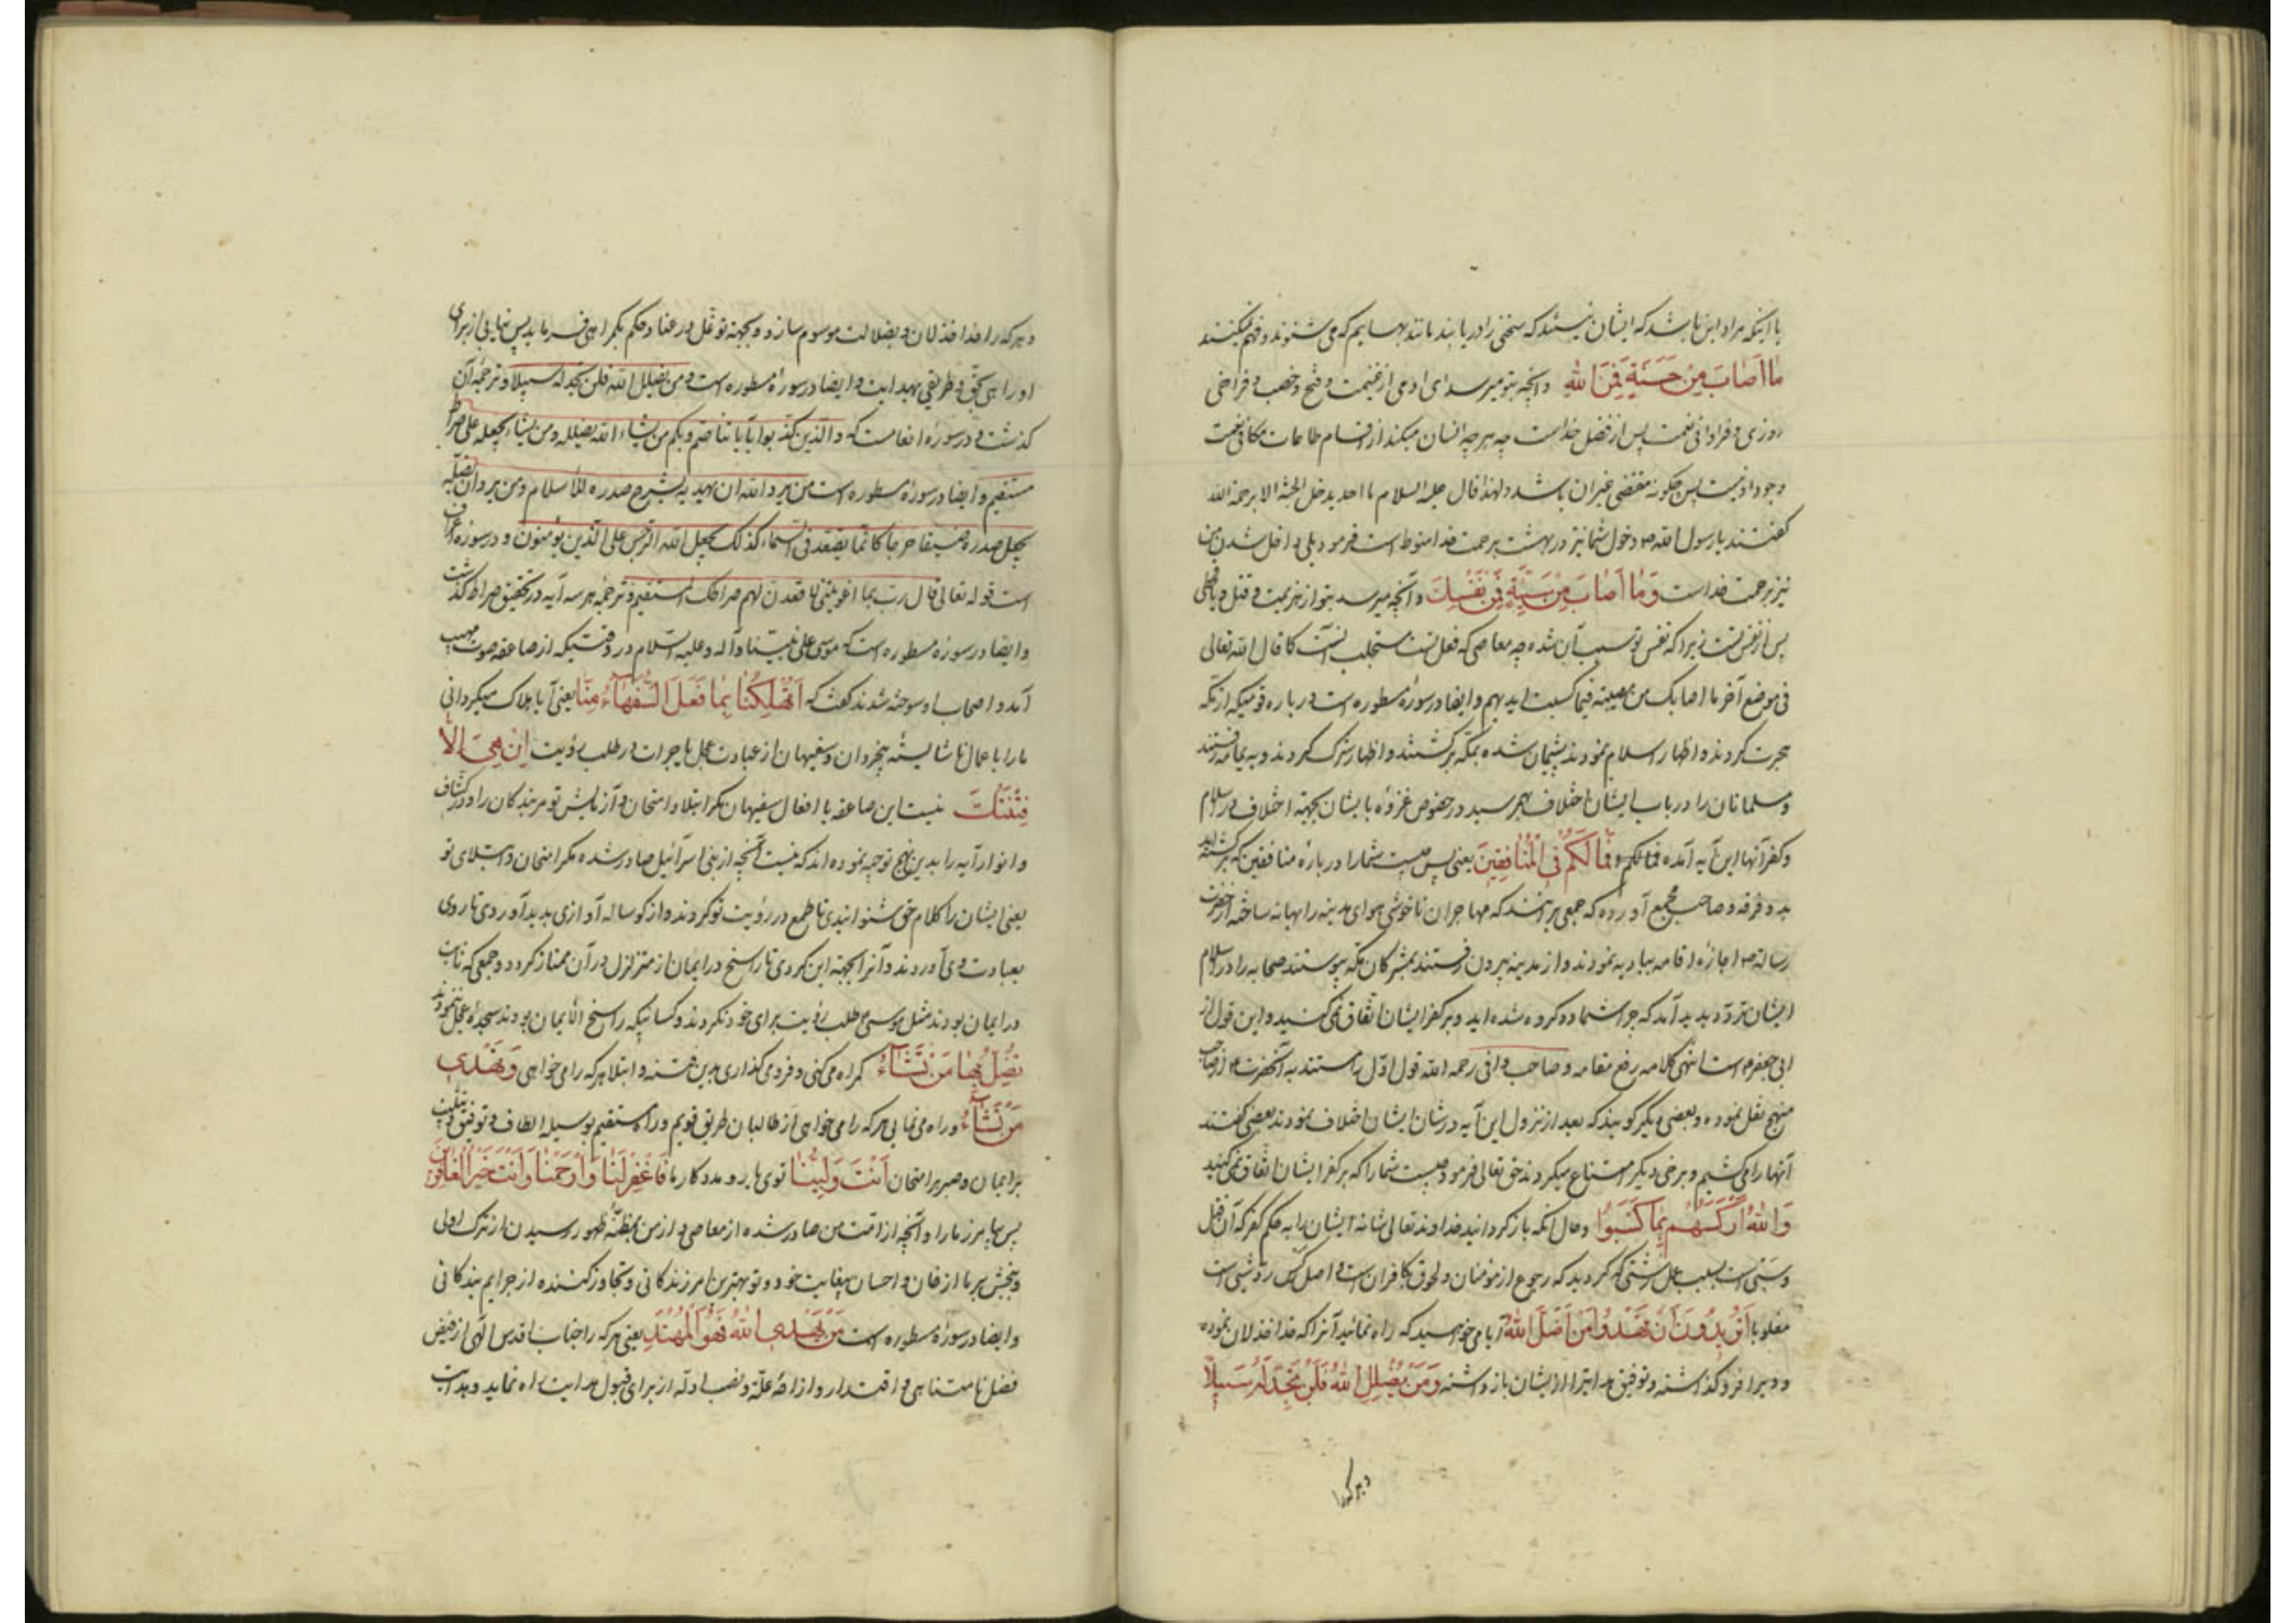 یا اینکه مراد این باشد که ایشان نیستند که سخنی را دریابند مانند بهایم که می شنوند و فهم نمیکنند
مٰا اَصٰابَ مِنْ حَسَنَةٍ فَمِنَ اللّٰهِ و آنچه بتو میرسد ای آدمی از غنیمت و فتح و خصب و فراخی
روزی و فراوانی نعمت پس از فضل خداست چه هر چه انسان میکند از اقسام طاعات مکافی نعمت
وجود او نیست پس چگونه مقتضی غیر آن باشد و لهذا قال علیه السلام ما احد یدخل الجنة الا برحمة الله
گفتند یا رسول الله ص دخول شما نیز در بهشت برحمت خدا منوط است فرمود بلی داخل شدن من
نیز برحمت خداست وَمٰا اَصٰابَ مِنْ سَیِّئَةٍ فَمِنْ نَفْسِكَ و آنچه میرسد بتو از هزیمت و قتل و
پس از نفس تست زیرا که نفس تو سبب آن شده چه معاصی که فعل تست مستجلب آنست کما قال الله تعالی
فی موضع آخر ما اصابکم من مصیبة فبما کسبت ایدیهم و ایضا در سورهٔ مسطوره است درباره قومیکه از مکه
هجرت کردند و اظهار اسلام نمودند پشیمان شده بمکه برگشتند و اظهار شرک کردند و به یمامه رفتند
و مسلمانان را در باب ایشان اختلاف بهم رسید در خصوص غزوه با ایشان بجهة اختلاف در اسلام
و کفر آنها این آیه آمده فمالکم و فَمٰا لَكُمْ فِی الْمُنٰافِقِینَ یعنی پس چیست شما را درباره منافقین که گشته اید
بدو فرقه و صاحب مجمع آورده که جمعی برآنند که مهاجران ناخوشی هوای مدینه را بهانه ساخته از حضرت
رسالة ص اجازه اقامه ببادیه نمودند و از مدینه بیرون رفتند بمشرکان مکه پیوستند صحابه را در اسلام
ایشان تردد پدید آمد که چرا شما دو گروه شده اید و بر کفر ایشان اتفاق نمی کنید و این قول از
ابی جعفر ع است انتهی کلامه رفع مقامه و صاحب وافی رحمه الله قول اول را مستند به آنحضرت ع از صاحب
منهج نقل نموده و بعضی دیگر گویند که بعد از نزول این آیه در شان ایشان اختلاف نمودند بعضی گفتند
آنها را می کشیم و برخی دیگر امتناع میکردند حق تعالی فرمود چیست شما را که بر کفر ایشان اتفاق نمی کنید
وَاللّٰهُ اَرْكَسَهُمْ بِمٰا كَسَبُوا و حال آنکه بازگردانید خداوند تعالی شانه ایشان را به حکم کفر که آن قتل
و سبی است بسبب عمل زشتی که کردید که رجوع از مومنان و لحوق بکافران است و اصل رکس رد شیئ است
مقلوبا اَتُرِیدُونَ اَنْ تَهْدُوا مَنْ اَضَلَّ اللّٰهُ آیا می خواهید که راه نمائید آنرا که خدا خذلان نموده
و ویرا فرو گذاشته و توفیق هدایترا از ایشان باز داشته وَمَنْ یُضْلِلِ اللّٰهُ فَلَنْ تَجِدَ لَهُ سَبِیلًا
و هر که را
و هر که را خدا خذلان و بضلالت موسوم سازد و بجهة توغل در عناد حکم بگمراهی فرماید پس نیابی از برای
او راهی بحق و طریقی بهدایت و ایضا در سوره مسطوره است و من یضلل الله فلن تجد له سبیلا و ترجمه آن
گذشت و در سوره انعامست که والذین کذبوا بآیاتنا صم و بکم من یشاء الله یضلله و من یشاء یجعله علی صراط
مستقیم و ایضا در سوره مسطوره است من یرد الله ان یهدیه یشرح صدره للاسلام و من یرد ان یضله
یجعل صدره ضیقا حرجا کانما یصعد فی السماء کذلک یجعل الله الرجس علی الذین لا یؤمنون و در سوره اعراف
است قوله تعالی قال رب بما اغویتنی لاقعدن لهم صراطک المستقیم و ترجمه هر سه آیه در تحقیق صراط گذشت
و ایضا در سوره مسطوره است که موسی علی نبینا و آله و علیه السلام در وقتیکه از صاعقه صوت مهیب
آمد و اصحاب او سوخته شدند گفت که اَتُهْلِكُنٰا بِمٰا فَعَلَ السُّفَهٰاءُ مِنّٰا یعنی آیا هلاک میگردانی
ما را با عمال ناشایسته بیخردان و سفیهان از عبادت عجل یا جرات در طلب رؤیت اِنْ هِیَ اِلّٰا
فِتْنَتُكَ نیست این صاعقه یا افعال سفیهان مگر ابتلا و امتحان و آزمایش تو مر بندگان را و در کشاف
و انوار آیه را بدین نهج توجیه نموده اند که نیست آنچه از بنی اسرائیل صادر شده مگر امتحان و ابتلای تو
یعنی ایشان را کلام حق شنوانیدی تا طمع در رؤیت تو کردند و از گوساله آوازی پدید آوردی تا روی
بعبادت وی آوردند و آنرا بجهة این کردی تا راسخ در ایمان از متزلزل در آن ممتاز گردد و جمعی که ثابت
در ایمان بودند مثل موسی ع طلب رؤیت برای خود نکردند و کسانیکه راسخ الایمان بودند سجده عجل ننمودند
تُضِلُّ بِهٰا مَنْ تَشٰاءُ گمراه می کنی و فرو میگذاری بدین فتنه و ابتلا هر که را میخواهی وَتَهْدِی
مَنْ تَشٰاءُ و راه می نمایی هر که را می خواهی از طالبان طریق قویم و راه مستقیم بوسیله الطاف و توفیق و تثبیت
بر ایمان و صبر بر امتحان اَنْتَ وَلِیُّنٰا توی یار و مددکار ما فَاغْفِرْ لَنٰا وَارْحَمْنٰا وَاَنْتَ خَیْرُ الْغٰافِرِینَ
پس بیامرز ما را و آنچه از امت من صادر شده از معاصی و از من بمظنه ظهور رسیدن از ترک اولی
و ببخش بر ما از فان و احسان بیغایت خود و تو بهترین آمرزندگانی و تجاوز کننده از جرایم بندگانی
و ایضا در سوره مسطوره است مَنْ یَهْدِی اللّٰهُ فَهُوَ الْمُهْتَدِ یعنی هر که را جناب اقدس الهی از فیض
فضل نامتناهی و اقتدار و ازاحه علة و نصب ادله از برای قبول هدایت راه نماید و هدایت